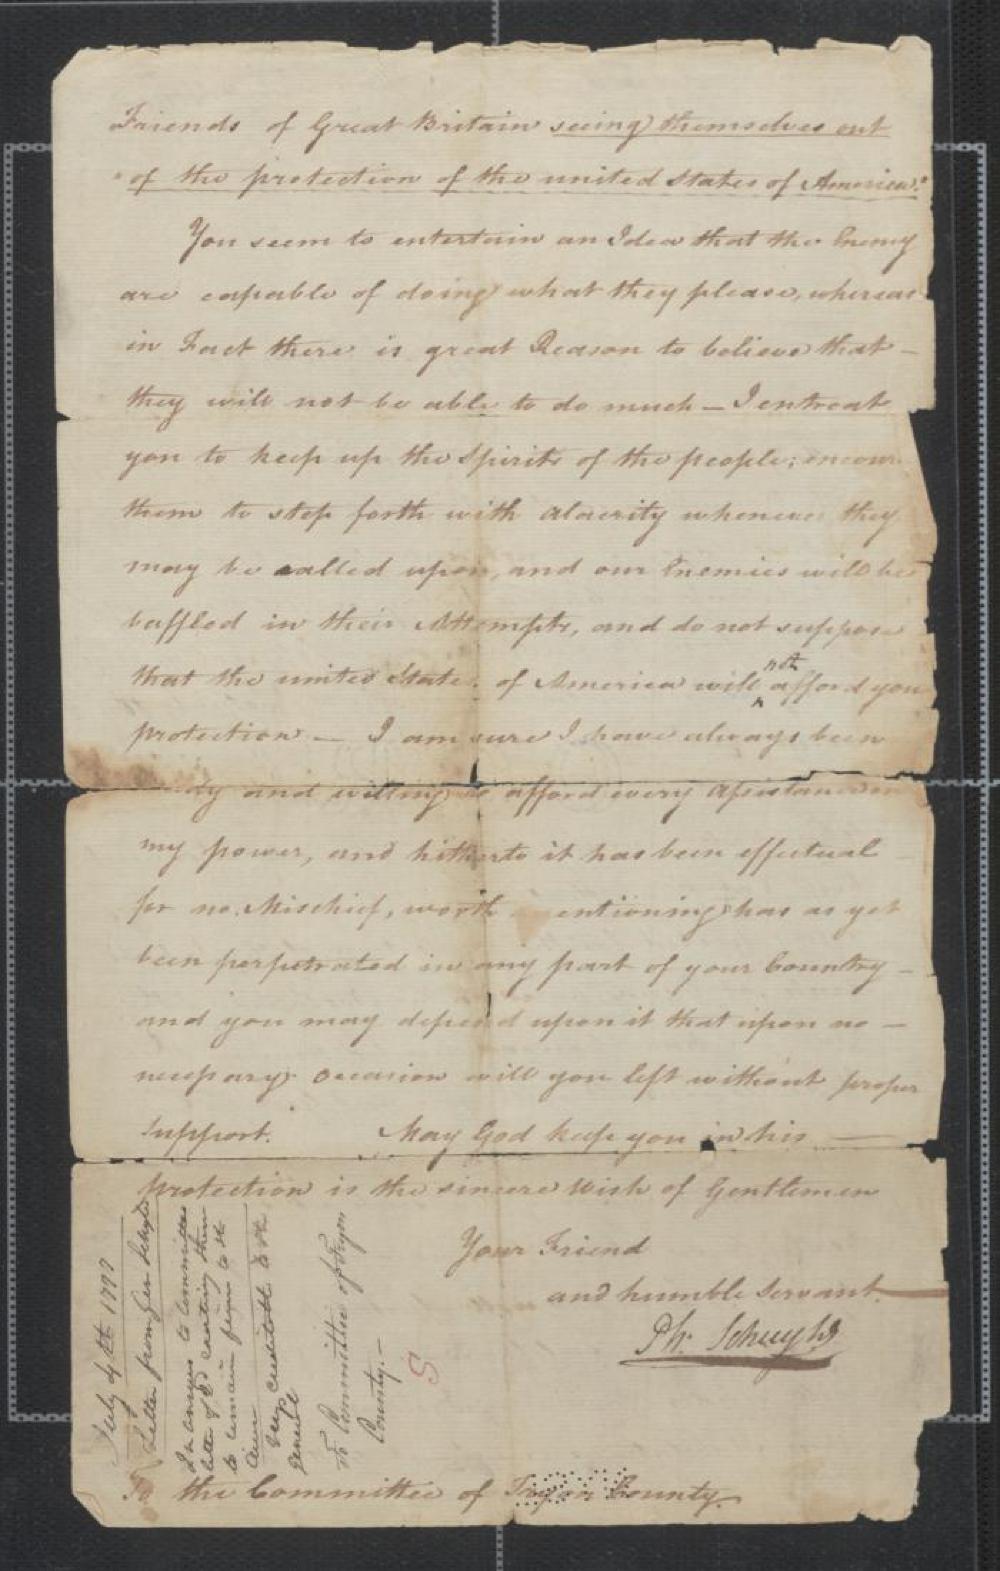 Friends of Great Britain seeing themselves out
"of the protection of the united States of America."
You seem to entertain an Idea that the Enemy
are capable of doing what they please, whereas
in Fact there is great Reason to believe that —
they will not be able to do much — I entreat
you to keep up the Spirits of the people; encour
them to step forth with alacrity whenever they
may be called upon, and our Enemies will be
baffled in their Attempts, and do not suppose
that the united States of America will not afford you
protection — I am sure I have always been
dy and willing to afford every assistance in
my power, and hitherto it has been effectual
for no Mischief, worth entioning has as yet
been perpetrated in any part of your Country —
and you may depend upon it that upon no —
necessary occasion will you left without proper
support. May God keep you in his —
protection is the sincere Wish of Gentlemen
Your Friend
and humble Servant
Ph. Schuyler
To the Committee of Tryon County.
July 9th 1777
Letter from Gen Schuyler
In answer to Committees
letter of exciting them
to remain firm to the
Cause
very creditable to the
General
To Committee of Tryon
County. —
S